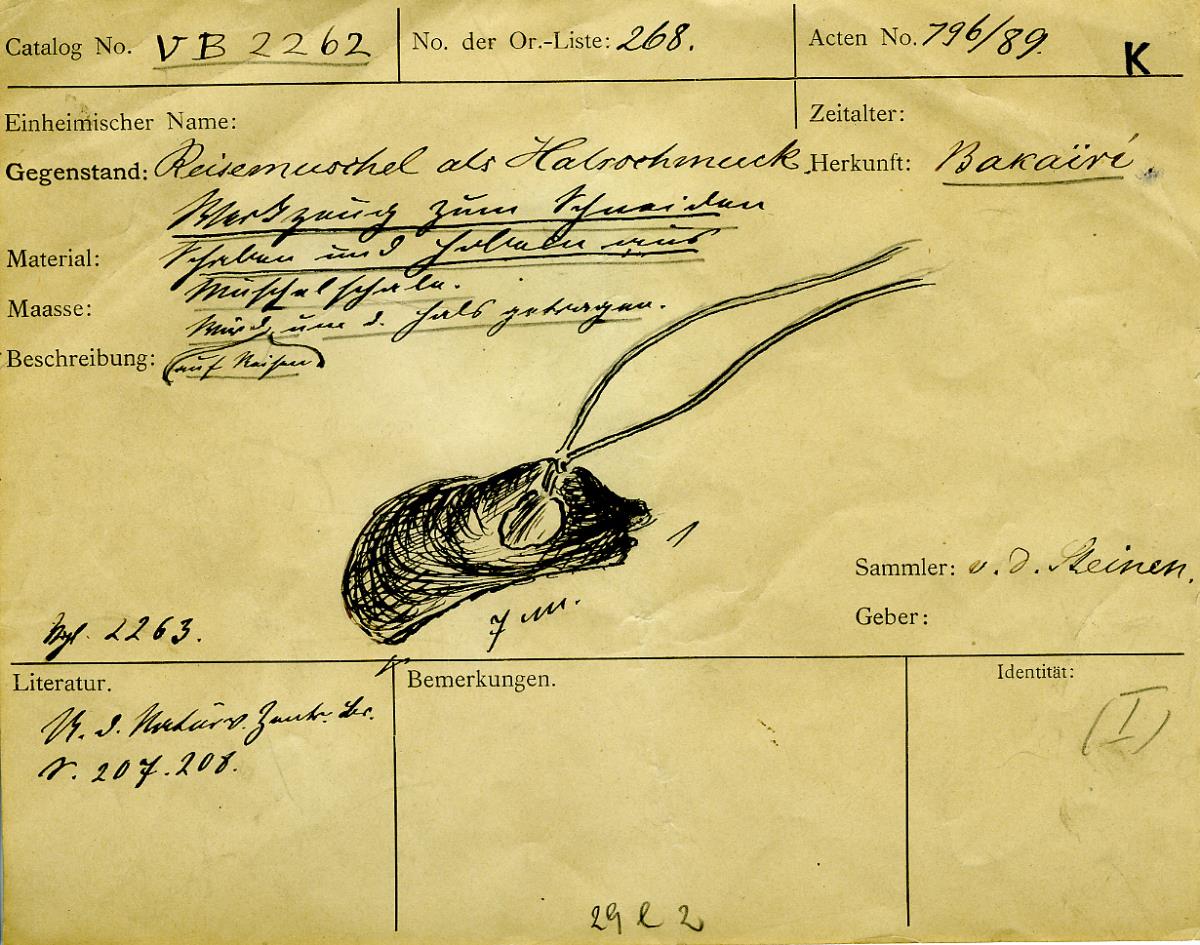 Catalog No. VB 2262
No. der Or.-Liste: 268.
Acten No. 796/89.
K
Einheimischer Name:
Zeitalter:
Gegenstand: Reisemuschel als Halsschmuck.
Herkunft: Bakaïrí.
Werkzeug zum Schneiden
Material: Schaben und Hobeln aus
Muschelschale.
Maasse:
Wird um d. Hals getragen.
Beschreibung: (auf Reisen)
1
7 cm.
Sammler: v. d. Steinen.
Geber:
Vgl. 2263.
Literatur.
U. d. Naturv. Zentr. Br.
S. 207. 208.
Bemerkungen.
Identität:
(I)
29 l 2